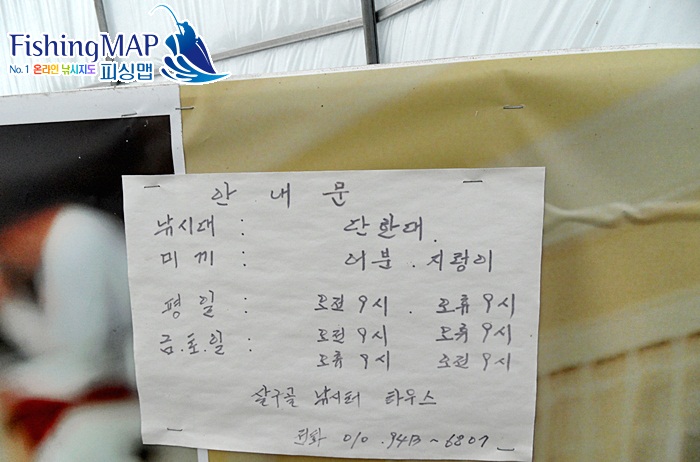 FishingMAP
No.1 온라인 낚시지도 피싱맵
안 내 문
낚시대 : 단한대.
미끼 : 어분 . 지렁이
평 일 : 오전 9시 . 오후 9시
금.토.일 : 오전 9시 오후 9시
오후 9시 오전 9시
살구골 낚시터 하우스
전화 010 . 9413 ~ 6807